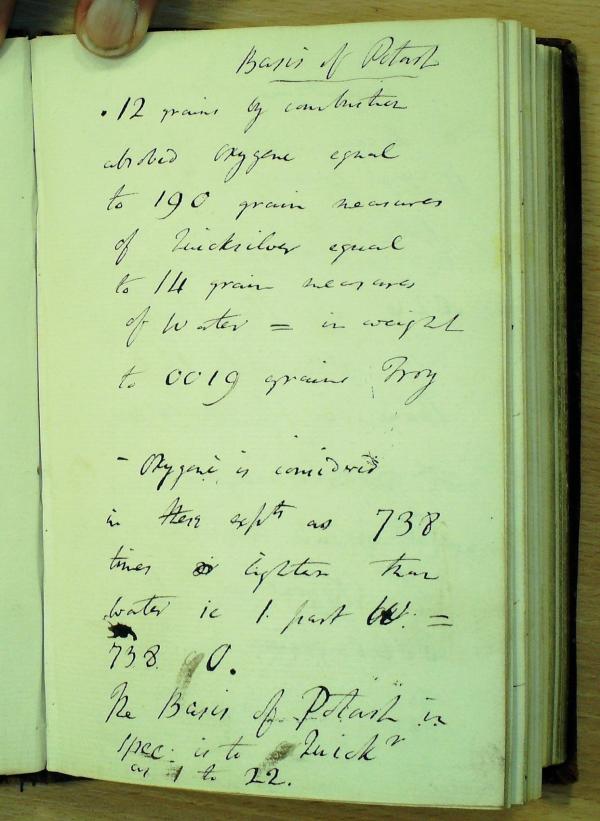 Basis of Potash
.12 grains by combustion
absorbed Oxygene equal
to 190 grain measures
of Quicksilver equal
to 14 grain measures
of Water = in weight
to 0019 grains Troy
- Oxygene is considered
in these expts as 738
times lighter than
water ie 1. part W. =
738 O.
The Basis of Potash in
spec: is to Quickr
as 1 to 22.